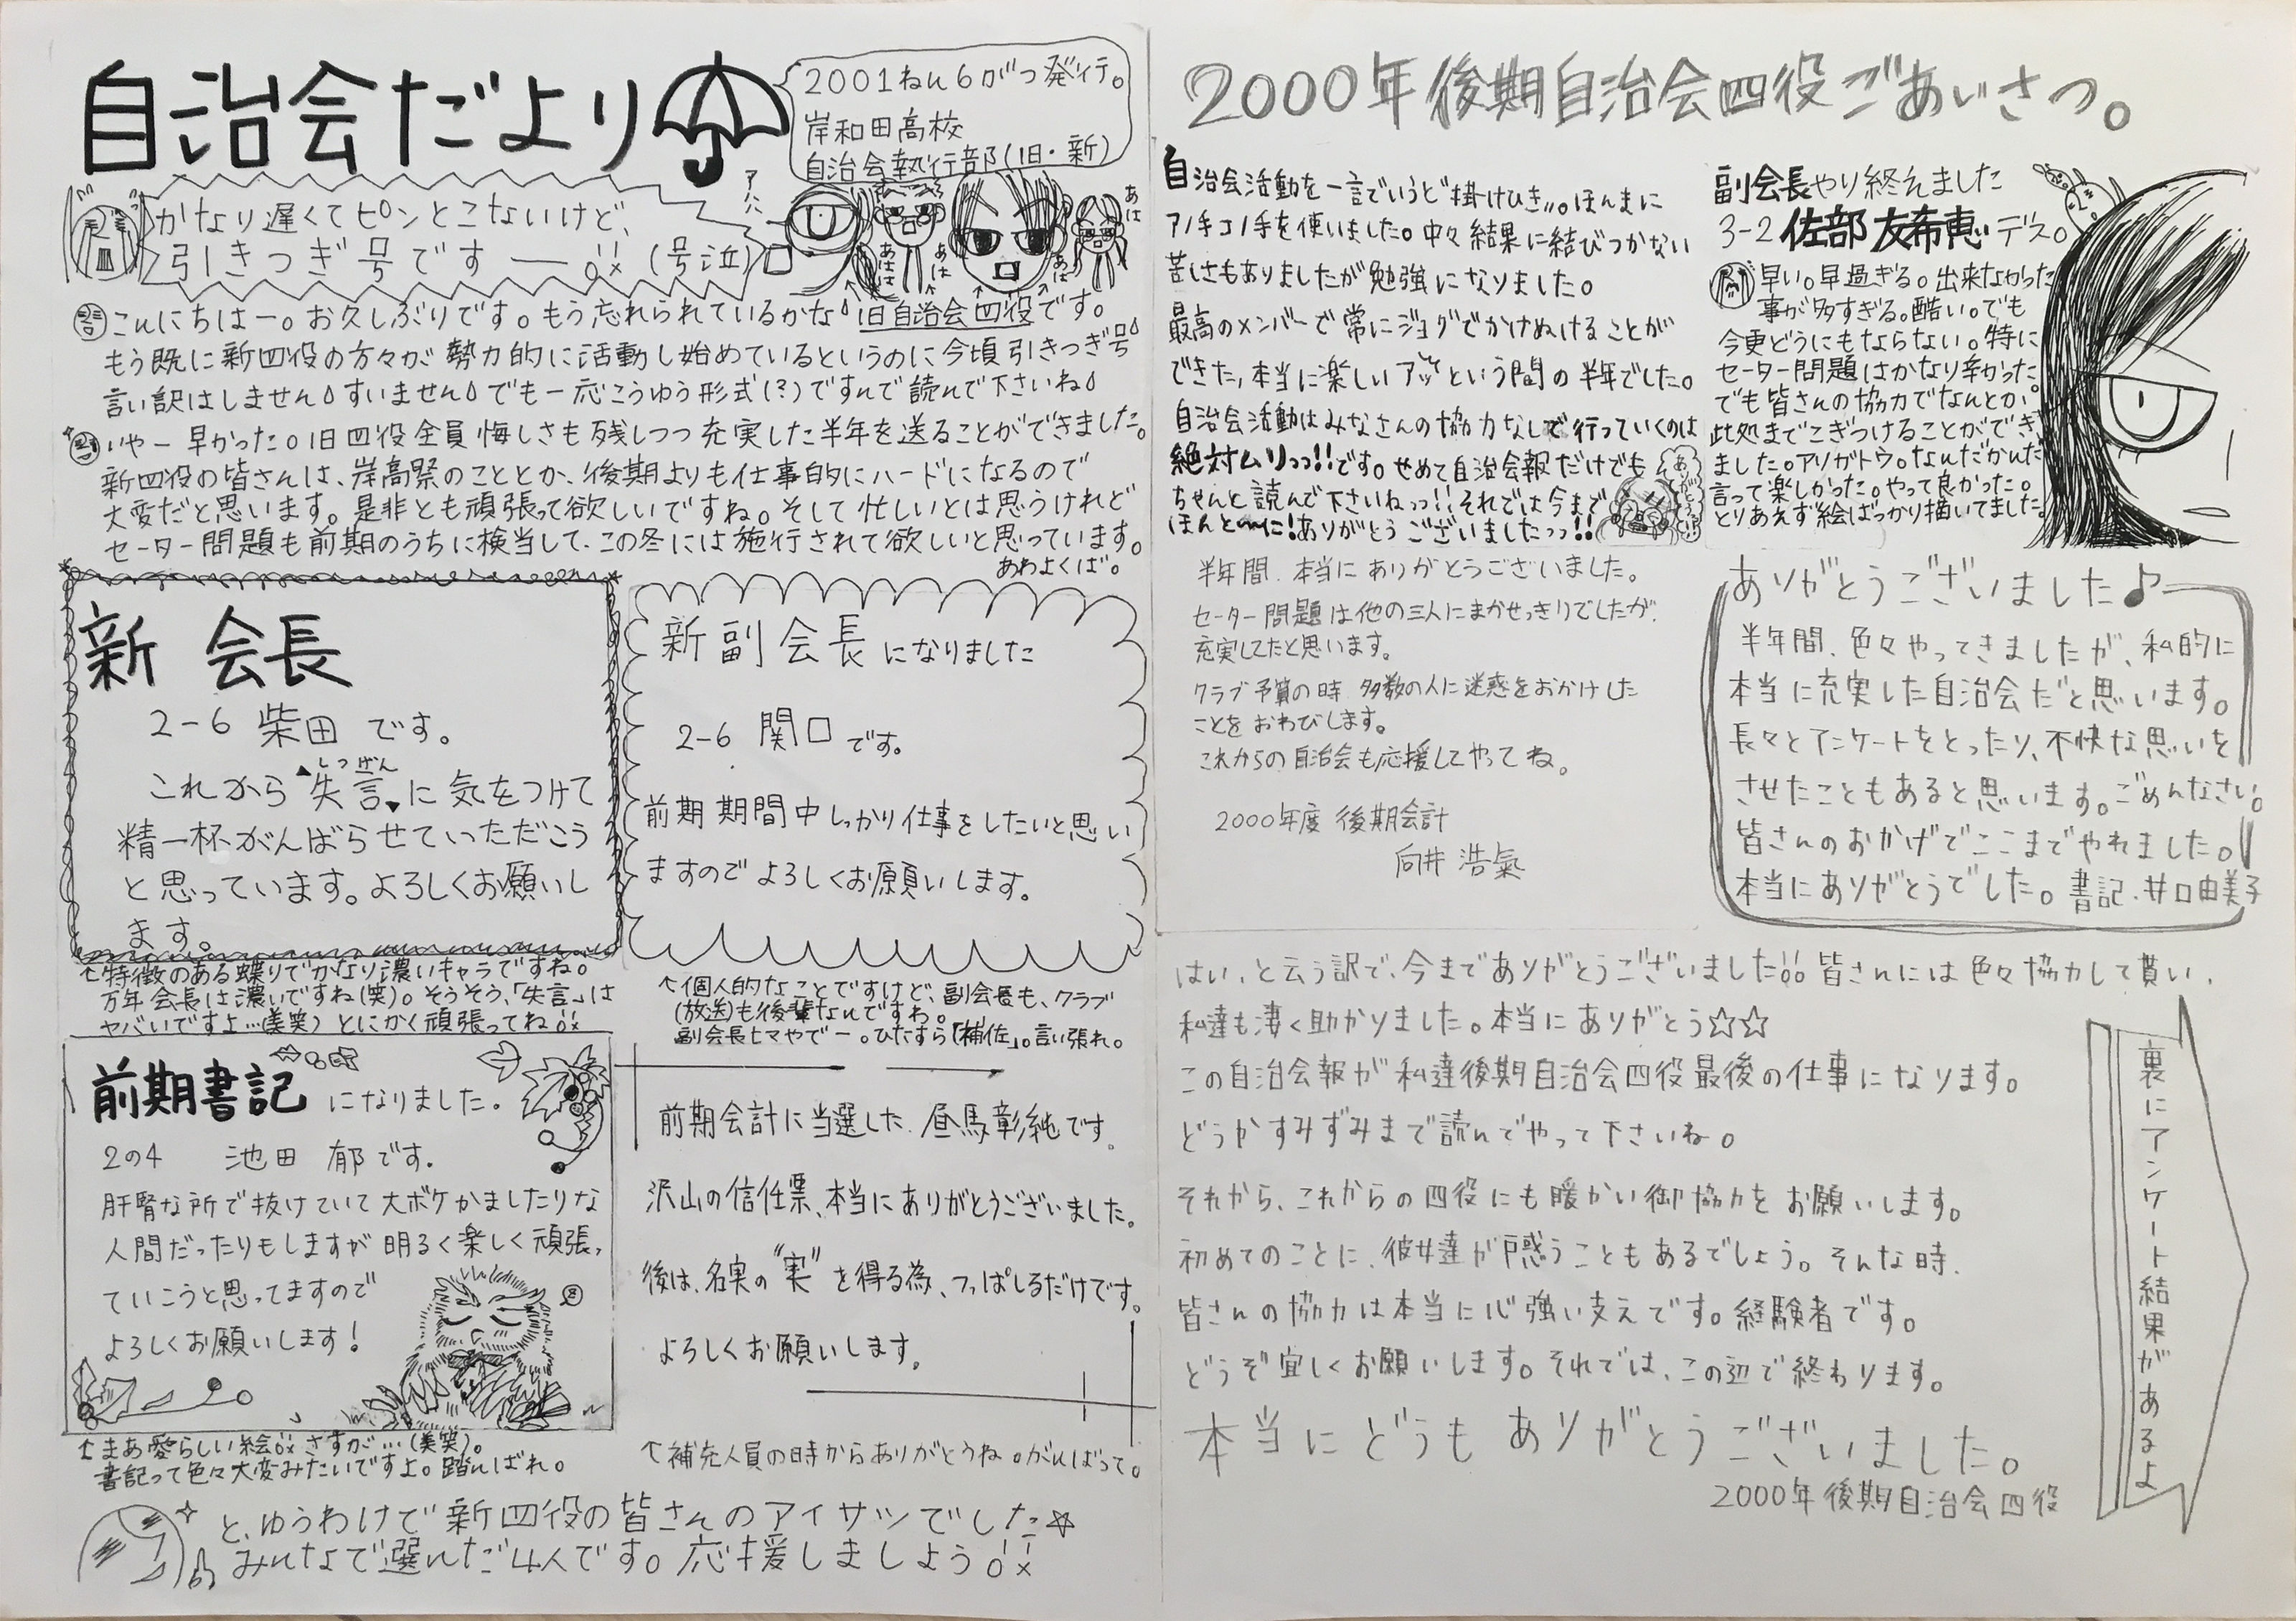 自治会だより
2001ねん6がつ発行。
岸和田高校
自治会執行部(旧・新)
かなり遅くてピンとこないけど、
引きつぎ号です―!!(号泣)
アハハ
あはは
あは
あは
あは
こんにちはー。お久しぶりです。もう忘れられているかな 旧自治会四役です。
もう既に新四役の方々が勢力的に活動し始めているというのに今頃引きつぎ号
言い訳はしません すいません でも一応こうゆう形式(?)ですんで読んで下さいね
いやー早かった。旧四役全員悔しさも残しつつ充実した半年を送ることができました。
新四役の皆さんは、岸高祭のこととか、後期よりも仕事的にハードになるので
大変だと思います。是非とも頑張って欲しいですね。そして忙しいとは思うけれど
セーター問題も前期のうちに検当して、この冬には施行されて欲しいと思っています。
あわよくば。
新 会長
2-6 柴田 です。
これから失言に気をつけて
しつげん
精一杯がんばらせていただこう
と思っています。よろしくお願いし
ます。
↑特徴のある蝶りでかなり濃いキャラですね。
万年会長は濃いですね(笑)。そうそう、「失言」は
ヤバいですよ…(美笑) とにかく頑張ってね
新副会長になりました
2-6 関口 です。
前期期間中しっかり仕事をしたいと思い
ますのでよろしくお願いします。
↑個人的なことですけど、副会長も、クラブ
(放送)も後輩なんですわ。
副会長ヒマやでー。ひたすら「補佐」。言い張れ。
前期書記になりました。
2の4 池田 郁です。
肝腎な所で抜けていて大ボケかましたりな
人間だったりもしますが明るく楽しく頑張っ
ていこうと思ってますので
よろしくお願いします!
↑まあ愛らしい絵 さすが…(美笑)。
書記って色々大変みたいですよ。踏んばれ。
前期会計に当選した、昼馬彰純です。
沢山の信任票、本当にありがとうございました。
後は、名実の“実”を得る為、つっぱしるだけです。
よろしくお願いします。
↑補充人員の時からありがとうね。がんばって。
と、ゆうわけで新四役の皆さんのアイサツでした☆
みんなで選んだ4人です。応援しましょう
2000年後期自治会四役ごあいさつ。
自治会活動を一言でいうと“掛けひき”。ほんまに
アノ手コノ手を使いました。中々結果に結びつかない
苦しさもありましたが勉強になりました。
最高のメンバーで常にジョグでかけぬけることが
できた、本当に楽しいアッという間の半年でした。
自治会活動はみなさんの協力なしで行っていくのは
絶対ムリっっ!!です。せめて自治会報だけでも
ちゃんと読んで下さいねっっ!!それでは今まで
ほんと〜に!ありがとうございましたっっ!!
副会長やり終えました
3-2 佐部 友希恵 デス。
早い。早過ぎる。出来なかった
事が多すぎる。酷い。でも
今更どうにもならない。特に
セーター問題はかなり辛かった。
でも皆さんの協力でなんとか、
此処までこぎつけることができ
ました。アリガトウ。なんだかんだ
言って楽しかった。やって良かった。
とりあえず絵ばっかり描いてました。
半年間、本当にありがとうございました。
セーター問題は他の三人にまかせっきりでしたが、
充実してたと思います。
クラブ予算の時、多数の人に迷惑をおかけした
ことをおわびします。
これからの自治会も応援してやってね。
2000年度 後期会計
向井 浩氣
ありがとうございました♪
半年間、色々やってきましたが、私的に
本当に充実した自治会だと思います。
長々とアンケートをとったり、不快な思いを
させたこともあると思います。ごめんなさい。
皆さんのおかげでここまでやれました。
本当にありがとうでした。書記、井口由美子
はい、と云う訳で、今までありがとうございました!!皆さんには色々協力して貰い、
私達も凄く助かりました。本当にありがとう☆☆
この自治会報が私達後期自治会四役最後の仕事になります。
どうかすみずみまで読んでやって下さいね。
それから、これからの四役にも暖かい御協力をお願いします。
初めてのことに、彼女達が戸惑うこともあるでしょう。そんな時、
皆さんの協力は本当に心強い支えです。経験者です。
どうぞ宜しくお願いします。それでは、この辺で終わります。
本当にどうもありがとうございました。
2000年後期自治会四役
裏にアンケート結果があるよ